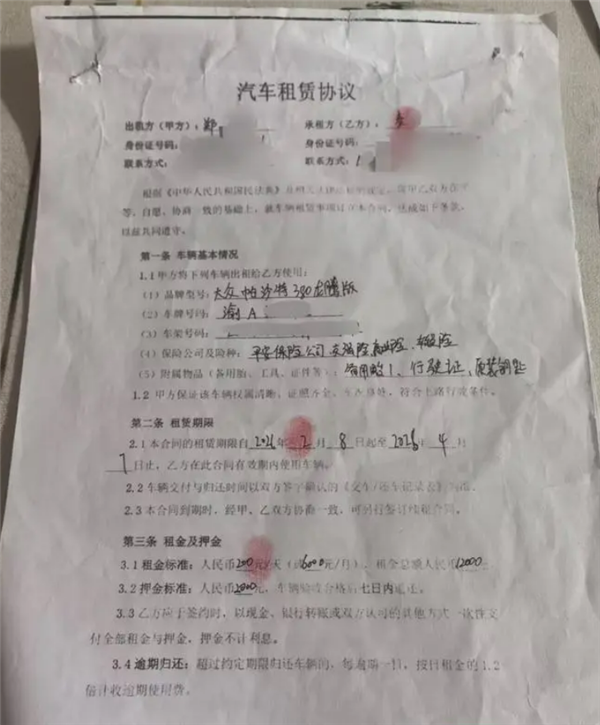 汽车租赁协议
出租方（甲方）：郑
承租方（乙方）：
身份证号码：
身份证号码：
联系方式：
联系方式：1
根据《中华人民共和国民法典》及相关法律法规的规定，甲乙双方在平
等、自愿、协商一致的基础上，就车辆租赁事项订立本合同，达成如下条款，
以兹共同遵守。
第一条 车辆基本情况
1.1甲方将下列车辆出租给乙方使用：
（1）品牌型号：大众帕沙特380龙腾版
（2）车牌号码：渝A
（3）车架号码：
（4）保险公司及险种：平安保险公司 交强险 商业险、
（5）附属物品（备用胎、工具、证件等）：备用胎1、行驶证、原装钥匙
1.2 甲方保证该车辆权属清晰、证照齐全、车况良好，符合上路行驶条件。
第二条 租赁期限
2.1本合同的租赁期限自2026年2月8日起至2026年4月
7日止，乙方在此合同有效期内使用车辆。
2.2车辆交付与归还时间以双方签字确认的《交车/还车记录表》为准。
2.3本合同到期时，经甲、乙双方协商一致，可另行签订续租合同。
第三条 租金及押金
3.1租金标准：人民币200元/天（或6000元/月），租金总额人民币12000
3.2押金标准：人民币2000元，车辆验收合格后七日内退还。
3.3乙方应于签约时，以现金、银行转账或双方认可的其他方式一次性支
付全部租金与押金，押金不计利息。
3.4逾期归还：超过约定期限归还车辆的，每逾期一日，按日租金的1.2
倍计收逾期使用费。